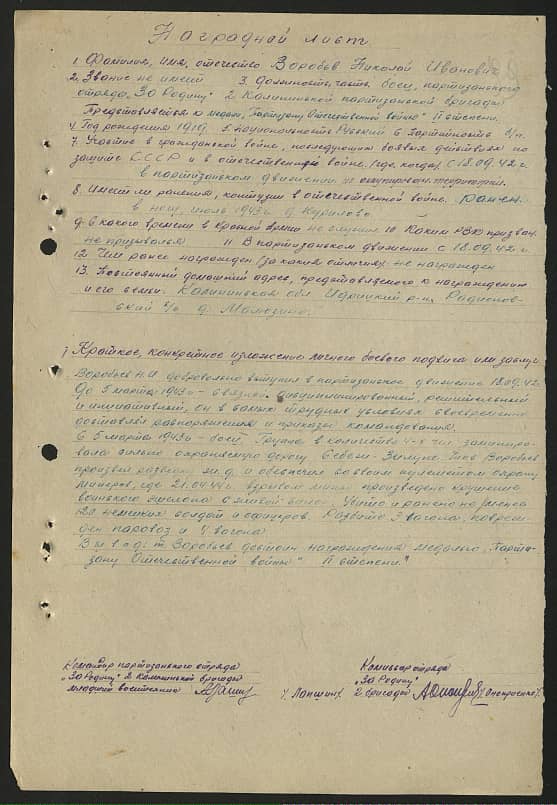 Наградной лист
1 Фамилия, имя, отчество Воробьев Николай Иванович
2. Звание не имеет 3. Должность, часть боец, партизанского
отряда „За Родину" 2 Калининской партизанской бригады
Представляется к медали „Партизану Отечественной войны" II степени.
4 Год рождения 1919. 5 национальность Русский 6 Партийность б/п.
7. Участие в гражданской войне, последующим боевых действиях по
защите СССР и в отечественной войне, (где, когда) С 18.09.42 г.
в партизанском движении на оккупирован. территории.
8. Имеет ли ранения, контузии в отечественной войне. ранен
в ногу июль 1943 г д. Курилово
9. С какого времени в красной армии не служил 10 Каким РВК призван
не призывался 11 В партизанском движении с 18.09.42 г.
12 Чем ранее награжден (за какия отличия) не награжден
13. Постоянный домашний адрес, представляемого к награждению
и его семьи. Калининская обл Идрицкий р-н,
с/с д.
Краткое, конкретное изложение личного боевого подвига или заслуг
Воробьев Н.И. добровольно вступил в партизанское движение 18.09.42
До 5 марта 1943 г - связной. дисциплинированный, решительный
и инициативный, он в самых трудных условиях своевременно
доставлял распоряжения и приказы командования.
С 5 марта 1943 г - боец. Группа в количестве 4-х чел. заминиро-
вала сильно охраняемую дорогу Себеж-Зилупе. Тов Воробьев
произвел разведку ж.д. и обеспечил своим пулеметом охрану
минеров, где 21.04.44 г. взрывом мины произведено крушение
воинского эшелона с живой силой. Убито и ранено не менее
120 немецких солдат и офицеров. Разбито 3 вагона, повреж-
ден паровоз и вагона.
Вывод: т. Воробьев достоин награждения медалью „Парти-
зану Отечественной войны" II степени."
Командир партизанского отряда
„За Родину" 2 Калининской бригады
младший воентехник / Лапшин /
Комиссар отряда
„За Родину"
2 бригады